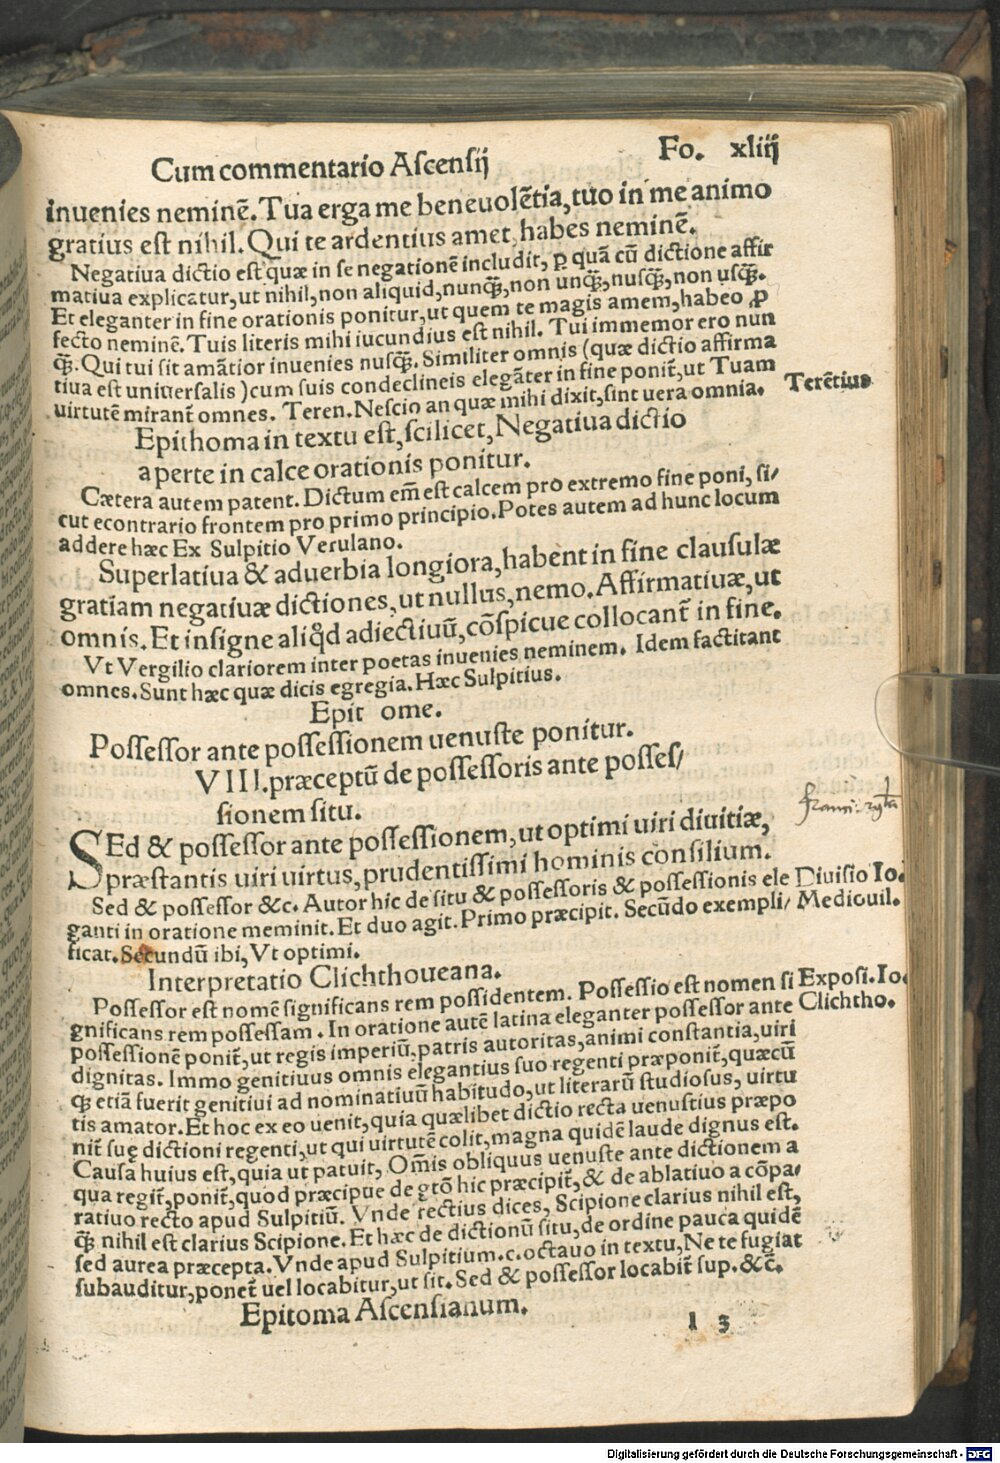 Cum commentario Aſcenſij Fo. xliij
inuenies neminē. Tua erga me beneuolētia, tuo in me animo
gratius eſt nihil. Qui te ardentius amet, habes neminē.
Negatiua dictio eſt quæ in ſe negationē includit, ꝑ quā cū dictione affir
matiua explicatur, ut nihil, non aliquid, nunꝗ̄, non unꝗ̄, nuſꝗ̄, non uſꝗ̄.
Et eleganter in fine orationis ponitur, ut quem te magis amem, habeo ꝓ
fecto neminē. Tuis literis mihi iucundius eſt nihil. Tui immemor ero nun
ꝗ̄. Qui tui ſit amātior inuenies nuſꝗ̄. Similiter omnis (quæ dictio affirma
tiua eſt uniuerſalis) cum ſuis condeclineis elegāter in fine ponit̄, ut Tuam
uirtutē mirant̄ omnes. Teren. Neſcio an quæ mihi dixit, ſint uera omnia.
Terētius
Epithoma in textu eſt, ſcilicet, Negatiua dictio
aperte in calce orationis ponitur.
Cætera autem patent. Dictum em̄ eſt calcem pro extremo fine poni, ſi/
cut econtrario frontem pro primo principio. Potes autem ad hunc locum
addere hæc Ex Sulpitio Verulano.
Superlatiua & aduerbia longiora, habent in fine clauſulæ
gratiam negatiuæ dictiones, ut nullus, nemo. Affirmatiuæ, ut
omnis. Et inſigne aliꝗd adiectiuū, cōſpicue collocant̄ in fine.
Vt Vergilio clariorem inter poetas inuenies neminem. Idem factitant
omnes. Sunt hæc quæ dicis egregia. Hæc Sulpitius.
Epit ome.
Poſſeſſor ante poſſeſſionem uenuſte ponitur.
VIII. præceptū de poſſeſſoris ante poſſeſ/
ſionem ſitu.
SEd & poſſeſſor ante poſſeſſionem, ut optimi uiri diuitiæ,
præſtantis uiri uirtus, prudentiſſimi hominis conſilium.
Sed & poſſeſſor &c. Autor hic de ſitu & poſſeſſoris & poſſeſſionis ele
ganti in oratione meminit. Et duo agit. Primo præcipit. Secūdo exempli/
ficat. Secundū ibi, Vt optimi.
Diuiſio Io.
Mediouil.
Interpretatio Clichthoueana.
Poſſeſſor eſt nomē ſignificans rem poſſidentem. Poſſeſſio eſt nomen ſi
gnificans rem poſſeſſam. In oratione autē latina eleganter poſſeſſor ante
poſſeſſionē ponit̄, ut regis imperiū, patris autoritas, animi conſtantia, uiri
dignitas. Immo genitiuus omnis elegantius ſuo regenti præponit̄, quæcū
ꝗ̄ etiā fuerit genitiui ad nominatiuū habitudo, ut literarū ſtudioſus, uirtu
tis amator. Et hoc ex eo uenit, quia quælibet dictio recta uenuſtius præpo
nit̄ ſuę dictioni regenti, ut qui uirtutē colit, magna quidē laude dignus eſt.
Cauſa huius eſt, quia ut patuit, Om̄is obliquus uenuſte ante dictionem a
qua regit̄, ponit̄, quod præcipue de gtō hic præcipit̄, & de ablatiuo a cōpa/
ratiuo recto apud Sulpitiū. Vnde rectius dices, Scipione clarius nihil eſt,
ꝗ̄ nihil eſt clarius Scipione. Et hæc de dictionū ſitu, de ordine pauca quidē
ſed aurea præcepta. Vnde apud Sulpitium. c. octauo in textu, Ne te fugiat
ſubauditur, ponet̄ uel locabitur, ut ſit. Sed & poſſeſſor locabit̄ ſup. &c̄.
Expoſi. Io.
Clichtho.
Epitoma Aſcenſianum.
l 3
Digitalisierung gefördert durch die Deutsche Forschungsgemeinschaft - DFG